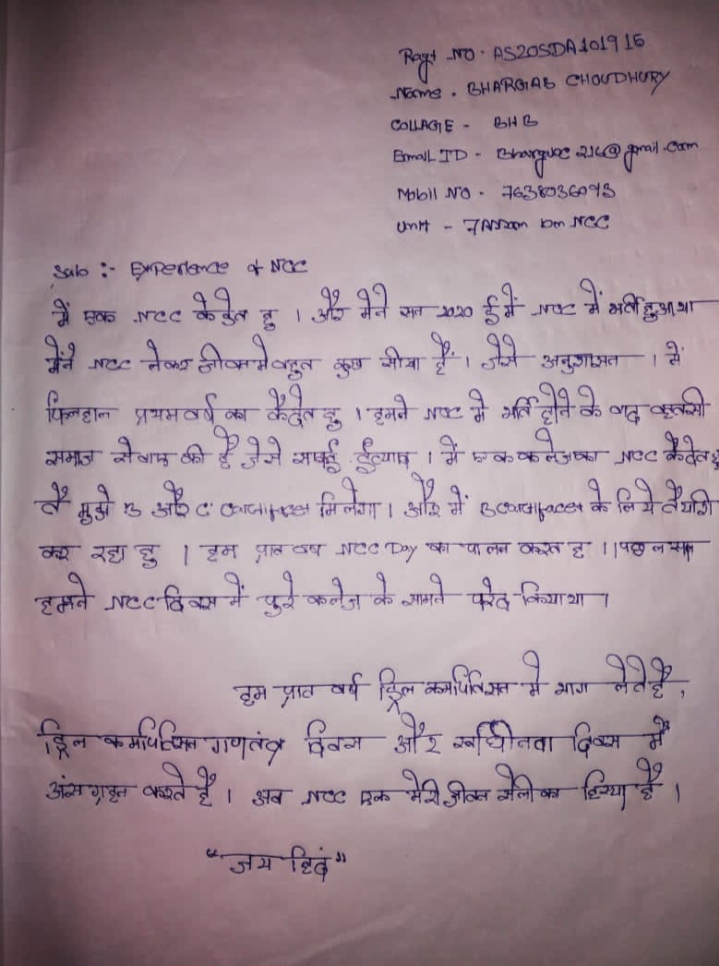 Regt NO. AS20SDA101916
Name. BHARGAB CHOUDHURY
COLLAGE - BHB
Email ID - @gmail.com
Mobil NO - 7638036093
Unit - 7 Assam bn NCC
Sub :- Experience of NCC
में एक NCC केडेत हु । और मेने सन 2020 ई में NCC में भर्ती हुआ था
मेंने NCC लेकर जीवन मे बहुत कुछ सीखा हैं । जेसे अनुशासन । में
फिलहाल प्रथम वर्ष का कैदेत हु । हमने NCC मे भर्ति होने के बाद बहुतसी
समाज सेवाए की है जेसे सफाई ईत्याद । में एक कलेज का NCC कैदेत हु
तै मुझे B और C मिलेगा । और में B के लिये तैयारी
कर रहा हु । हम प्रात वर्ष NCC Day का पालन करत ह । पिछले साल
हमने NCC दिवस में पुरे कलेज के सामने परेद किया था ।
हम प्रात वर्ष ड्रिल कमपितिसन मे भाग लेते है ,
ड्रिल कमपितिसन गणतंत्र दिवस और स्वाधिनता दिवस में
अंस ग्रहन करते है । अब NCC एक मेरी जीवन सेली का हिस्या है ।
"जय हिदं"